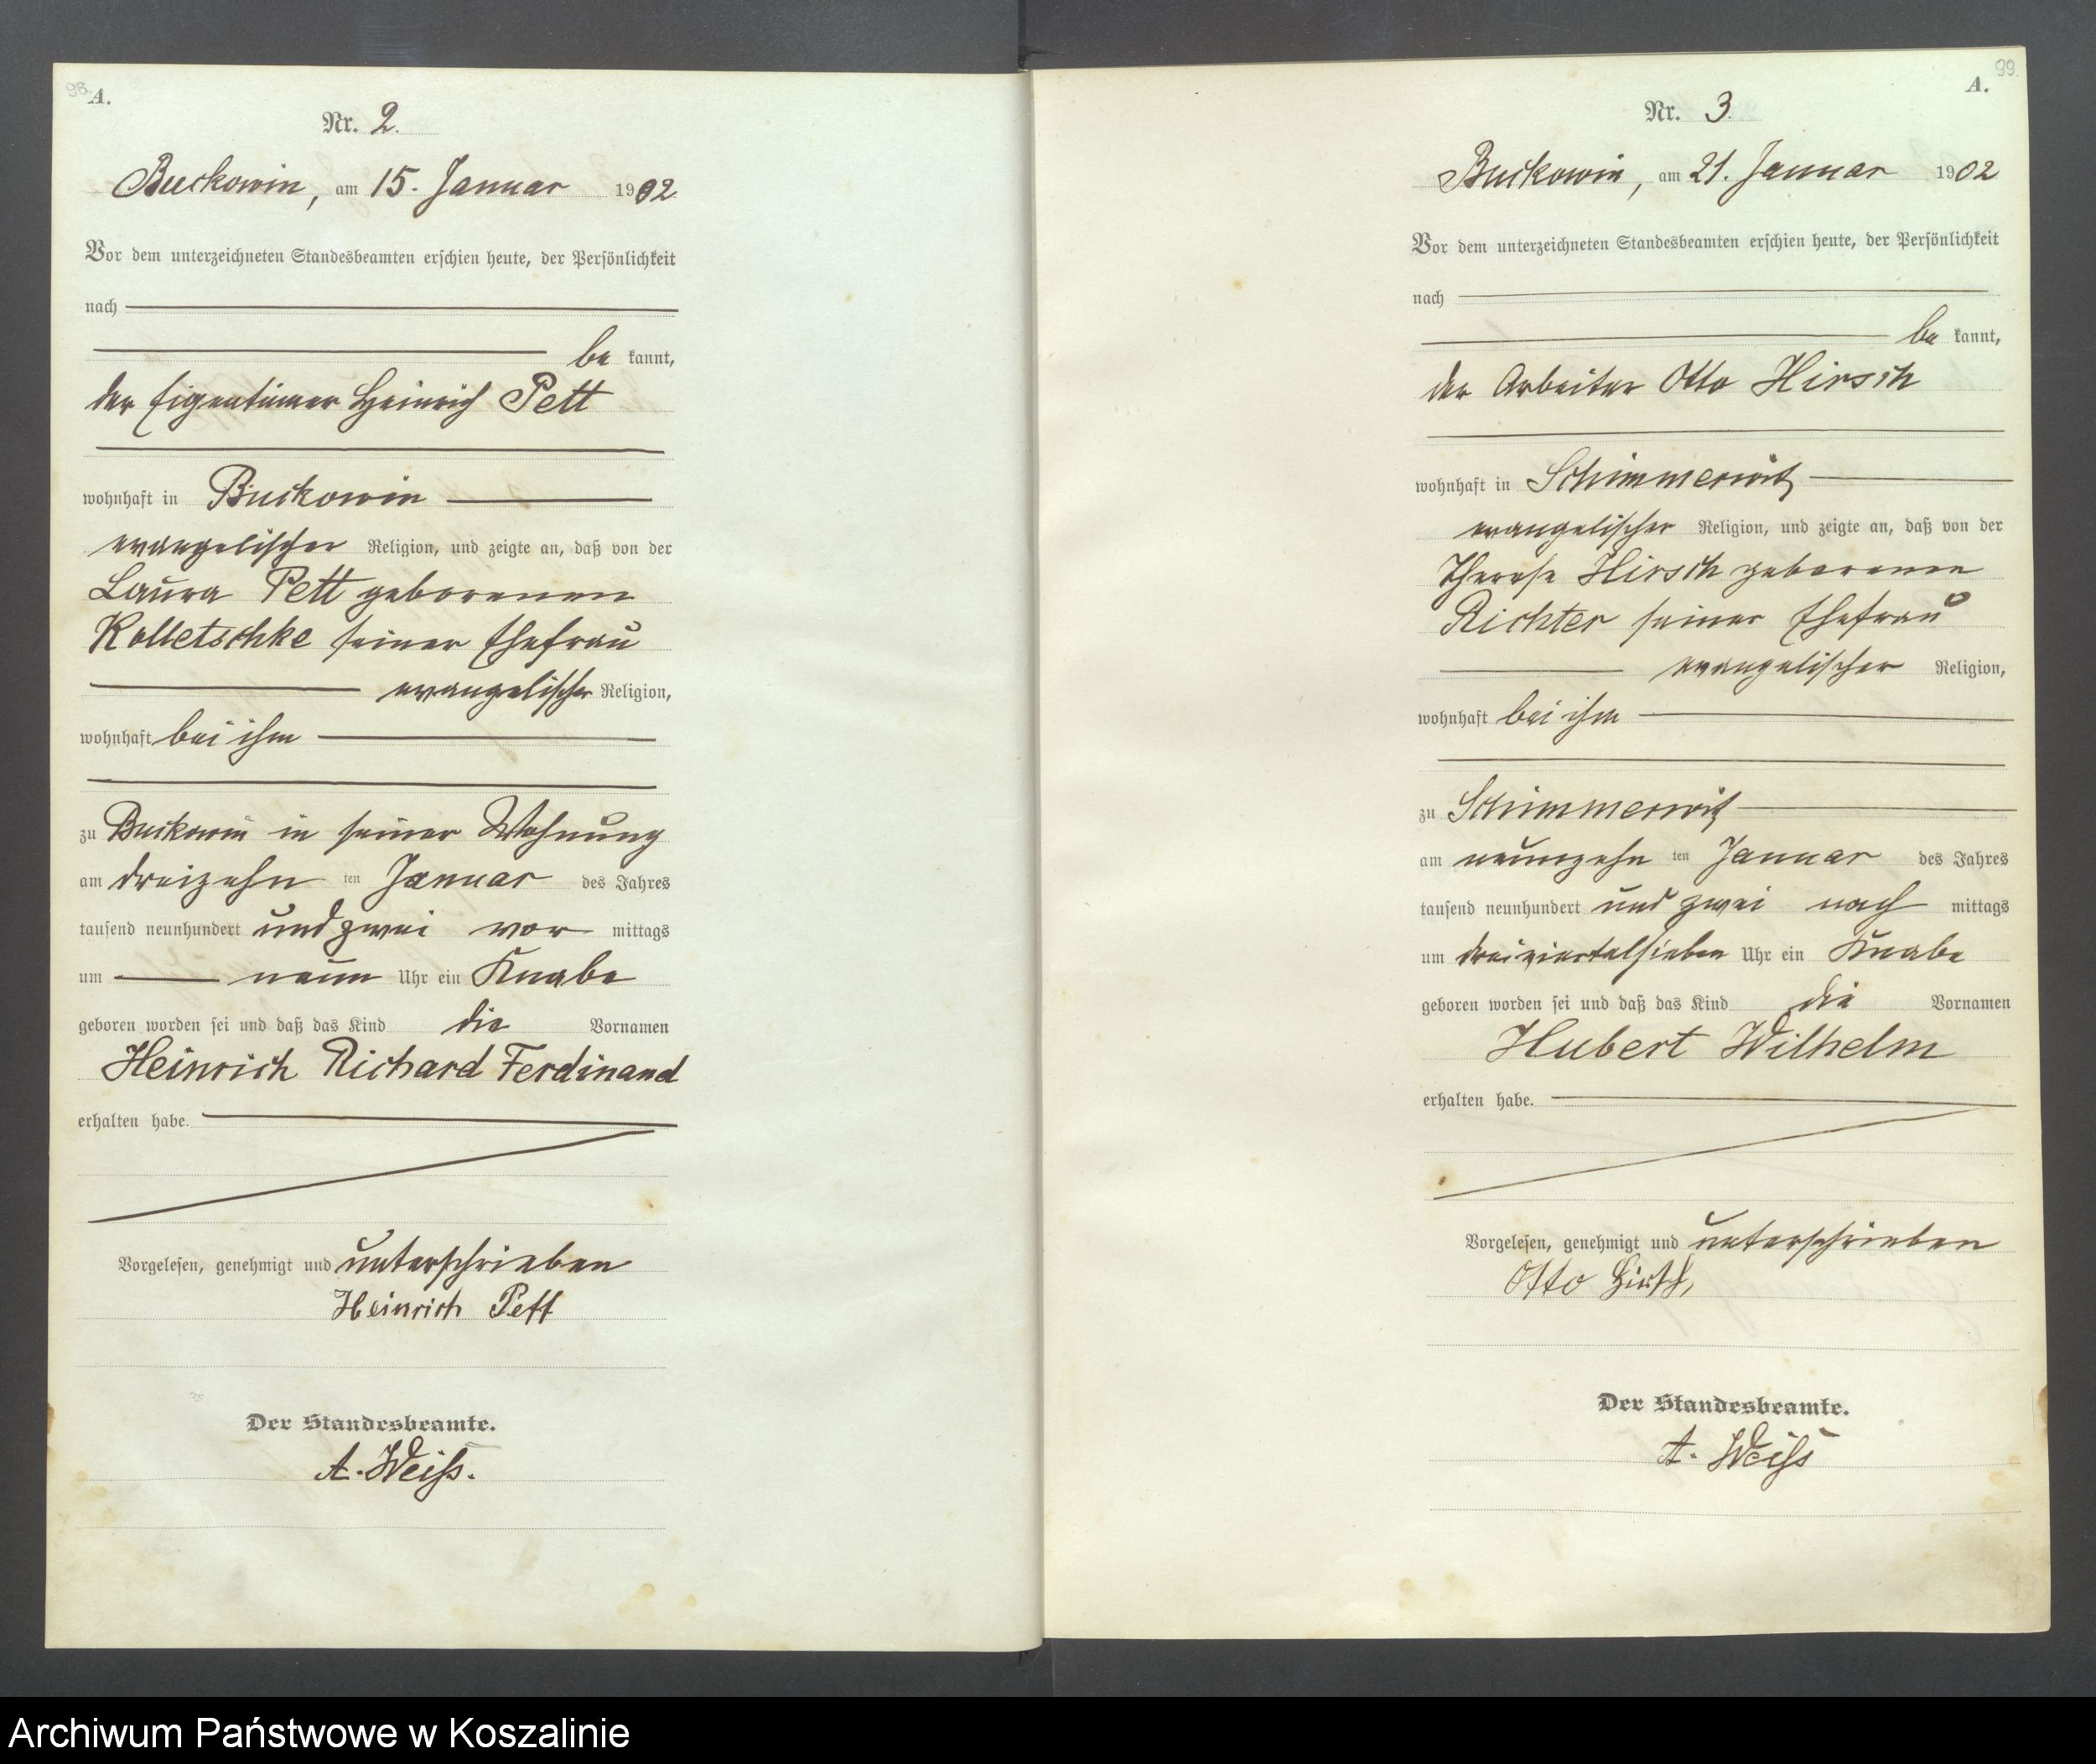 98.
A.
Nr. 2.
Buckowin, am 15. Januar 1902
Vor dem unterzeichneten Standesbeamten erschien heute, der Persönlichkeit
nach
be kannt,
der Eigentümer Heinrich Pett
wohnhaft in Buckowin
evangelischer Religion, und zeigte an, daß von der
Laura Pett geborenen
Kolletschke seiner Ehefrau
evangelischer Religion,
wohnhaft bei ihm
zu Buckowin in seiner Wohnung
am dreizehn ten Januar des Jahres
tausend neunhundert und zwei vor mittags
um neun Uhr ein Knabe
geboren worden sei und daß das Kind die Vornamen
Heinrich Richard Ferdinand
erhalten habe.
Vorgelesen, genehmigt und unterschrieben
Heinrich Pett
Der Standesbeamte.
A. Weiß.
99.
A.
Nr. 3.
Buckowin, am 21. Januar 1902
Vor dem unterzeichneten Standesbeamten erschien heute, der Persönlichkeit
nach
be kannt,
der Arbeiter Otto Hirsch
wohnhaft in Schimmerwitz
evangelischer Religion, und zeigte an, daß von der
Therese Hirsch geborenen
Richter seiner Ehefrau
evangelischer Religion,
wohnhaft bei ihm
zu Schimmerwitz
am neunzehn ten Januar des Jahres
tausend neunhundert und zwei nach mittags
um dreiviertelsieben Uhr ein Knabe
geboren worden sei und daß das Kind die Vornamen
Hubert Wilhelm
erhalten habe.
Vorgelesen, genehmigt und unterschrieben
Otto Hirsch,
Der Standesbeamte.
A. Weiß
Archiwum Państwowe w Koszalinie